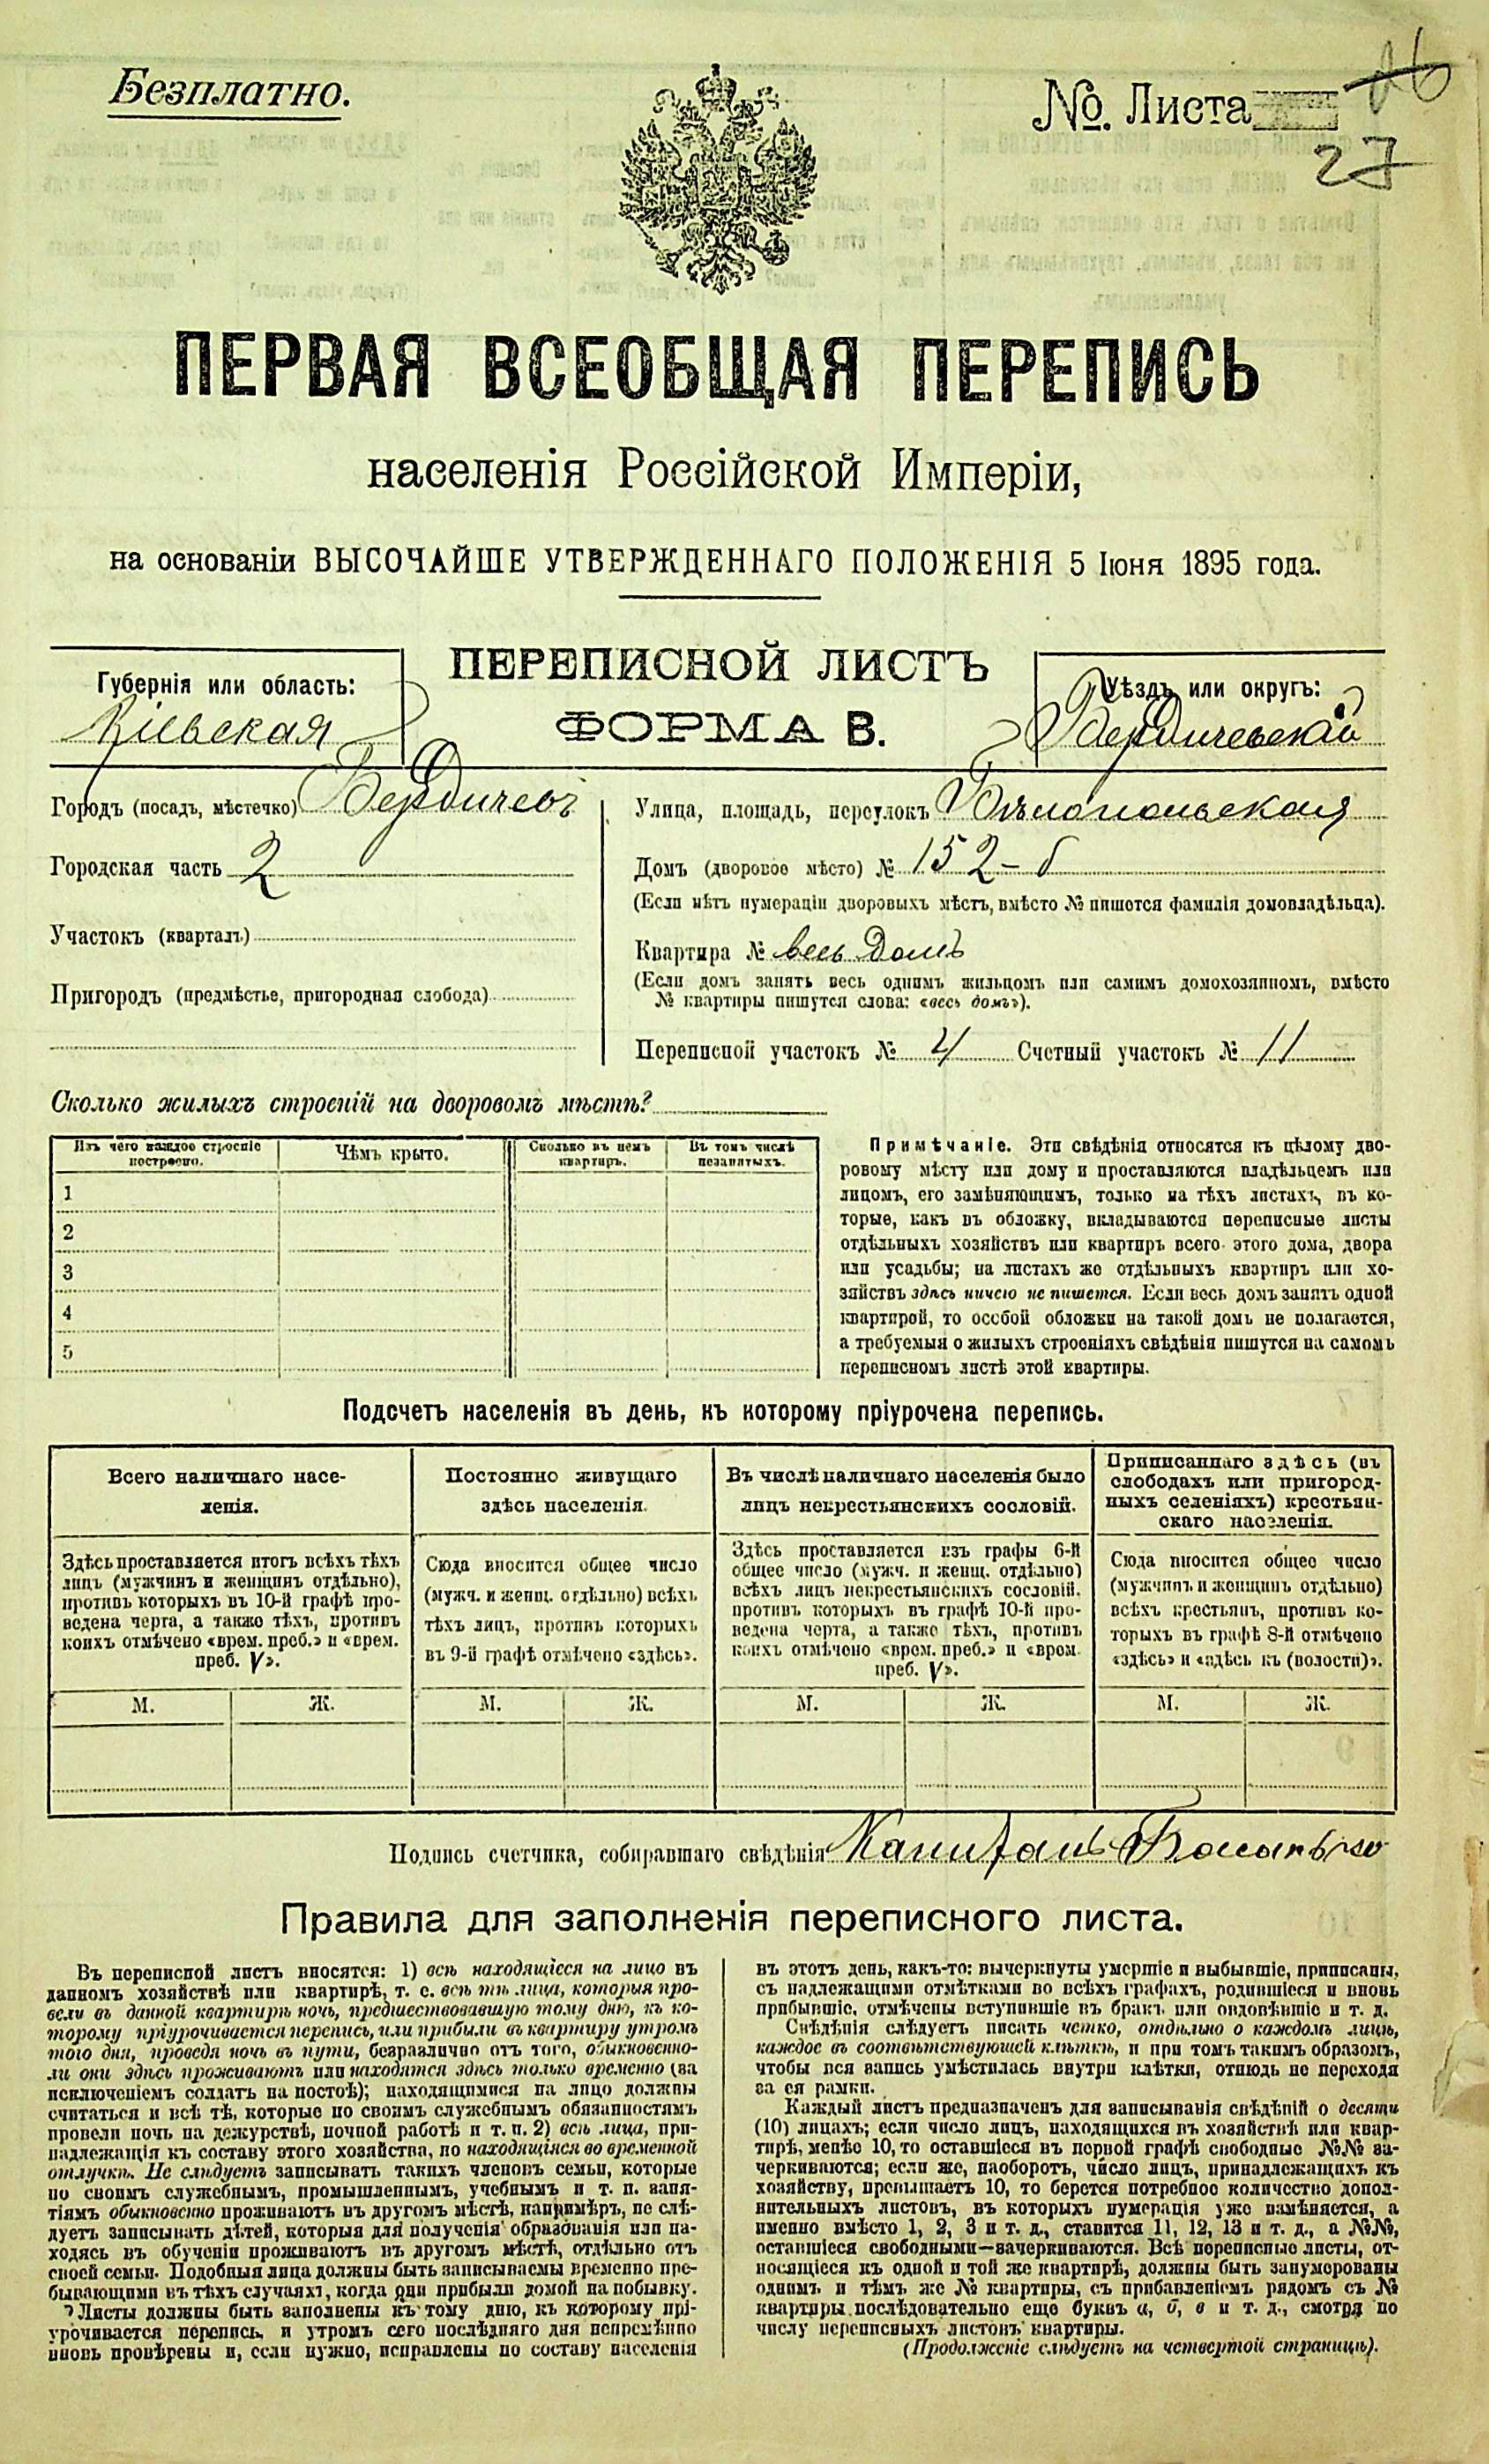 Безплатно.
№. Листа
27
ПЕРВАЯ ВСЕОБЩАЯ ПЕРЕПИСЬ
населенія Россійской Имперіи,
на основаніи ВЫСОЧАЙШЕ УТВЕРЖДЕННАГО ПОЛОЖЕНІЯ 5 Іюня 1895 года.
Губернія или область:
Кіевская
ПЕРЕПИСНОЙ ЛИСТЪ
ФОРМА В.
Уѣздъ или округъ:
Бердичевскій
Городъ (посадъ, мѣстечко) Бердичевъ
Городская часть 2
Участокъ (кварталъ)
Пригородъ (предмѣстье, пригородная слобода)
Улица, площадь, переулокъ Бѣлопольская
Домъ (дворовое мѣсто) № 152-б
(Если нѣтъ нумераціи дворовыхъ мѣстъ, вмѣсто № пишется фамилія домовладѣльца).
Квартира № весь домъ
(Если домъ занятъ весь однимъ жильцомъ или самимъ домохозяиномъ, вмѣсто
№ квартиры пишутся слова: «весь домъ»).
Переписной участокъ № 4 Счетный участокъ № 11
Сколько жилыхъ строеній на дворовомъ мѣстѣ?
Изъ чего каждое строеніе
построено.
Чѣмъ крыто.
Сколько въ немъ
квартиръ.
Въ томъ числѣ
незанятыхъ.
1
2
3
4
5
Примѣчаніе. Эти свѣдѣнія относятся къ цѣлому дво-
ровому мѣсту или дому и проставляются владѣльцемъ или
лицомъ, его замѣняющимъ, только на тѣхъ листахъ, въ ко-
торые, какъ въ обложку, вкладываются переписные листы
отдѣльныхъ хозяйствъ или квартиръ всего этого дома, двора
или усадьбы; на листахъ же отдѣльныхъ квартиръ или хо-
зяйствъ здѣсь ничего не пишется. Если весь домъ занятъ одной
квартирой, то особой обложки на такой домъ не полагается,
а требуемыя о жилыхъ строеніяхъ свѣдѣнія пишутся на самомъ
переписномъ листѣ этой квартиры.
Подсчетъ населенія въ день, къ которому пріурочена перепись.
Всего наличнаго насе-
ленія.
Здѣсь проставляется итогъ всѣхъ тѣхъ
лицъ (мужчинъ и женщинъ отдѣльно),
противъ которыхъ въ 10-й графѣ про-
ведена черта, а также тѣхъ, противъ
коихъ отмѣчено «врем. преб.» и «врем.
преб. V».
Постоянно живущаго
здѣсь населенія.
Сюда вносится общее число
(мужч. и женщ. отдѣльно) всѣхъ
тѣхъ лицъ, противъ которыхъ
въ 9-й графѣ отмѣчено «здѣсь».
Въ числѣ наличнаго населенія было
лицъ некрестьянскихъ сословій.
Здѣсь проставляется изъ графы 6-й
общее число (мужч. и женщ. отдѣльно)
всѣхъ лицъ некрестьянскихъ сословій,
противъ которыхъ въ графѣ 10-й про-
ведена черта, а также тѣхъ, противъ
коихъ отмѣчено «врем. преб.» и «врем.
преб. V».
Приписаннаго здѣсь (въ
слободахъ или пригород-
ныхъ селеніяхъ) крестьян-
скаго населенія.
Сюда вносится общее число
(мужчинъ и женщинъ отдѣльно)
всѣхъ крестьянъ, противъ ко-
торыхъ въ графѣ 8-й отмѣчено
«здѣсь» и «здѣсь къ (волости)».
М. Ж. М. Ж. М. Ж. М. Ж.
Подпись счетчика, собиравшаго свѣдѣнія Капитанъ
Правила для заполненія переписного листа.
Въ переписной листъ вносятся: 1) всѣ находящіеся на лицо въ
данномъ хозяйствѣ или квартирѣ, т. е. всѣ тѣ лица, которыя про-
вели въ данной квартирѣ ночь, предшествовавшую тому дню, къ ко-
торому пріурочивается перепись, или прибыли въ квартиру утромъ
того дня, проведя ночь въ пути, безразлично отъ того, обыкновенно-
ли они здѣсь проживаютъ или находятся здѣсь только временно (за
исключеніемъ солдатъ на постоѣ); находящимися на лицо должны
считаться и всѣ тѣ, которые по своимъ служебнымъ обязанностямъ
провели ночь на дежурствѣ, ночной работѣ и т. п. 2) всѣ лица, при-
надлежащія къ составу этого хозяйства, но находящіяся во временной
отлучкѣ. Не слѣдуетъ записывать такихъ членовъ семьи, которые
по своимъ служебнымъ, промышленнымъ, учебнымъ и т. п. заня-
тіямъ обыкновенно проживаютъ въ другомъ мѣстѣ, напримѣръ, не слѣ-
дуетъ записывать дѣтей, которыя для полученія образованія или на-
ходясь въ обученіи проживаютъ въ другомъ мѣстѣ, отдѣльно отъ
своей семьи. Подобныя лица должны быть записываемы временно пре-
бывающими въ тѣхъ случаяхъ, когда они прибыли домой на побывку.
Листы должны быть заполнены къ тому дню, къ которому прі-
урочивается перепись, и утромъ сего послѣдняго дня непремѣнно
вновь провѣрены и, если нужно, исправлены по составу населенія
въ этотъ день, какъ-то: вычеркнуты умершіе и выбывшіе, приписаны,
съ надлежащими отмѣтками во всѣхъ графахъ, родившіеся и вновь
прибывшіе, отмѣчены вступившіе въ бракъ или овдовѣвшіе и т. д.
Свѣдѣнія слѣдуетъ писать четко, отдѣльно о каждомъ лицѣ,
каждое въ соотвѣтствующей клѣткѣ, и при томъ такимъ образомъ,
чтобы вся запись умѣстилась внутри клѣтки, отнюдь не переходя
за ея рамки.
Каждый листъ предназначенъ для записыванія свѣдѣній о десяти
(10) лицахъ; если число лицъ, находящихся въ хозяйствѣ или квар-
тирѣ, менѣе 10, то оставшіеся въ первой графѣ свободные №№ за-
черкиваются; если же, наоборотъ, число лицъ, принадлежащихъ къ
хозяйству, превышаетъ 10, то берется потребное количество допол-
нительныхъ листовъ, въ которыхъ нумерація уже измѣняется, а
именно вмѣсто 1, 2, 3 и т. д., ставится 11, 12, 13 и т. д., а №№,
оставшіеся свободными—зачеркиваются. Всѣ переписные листы, от-
носящіеся къ одной и той же квартирѣ, должны быть занумерованы
однимъ и тѣмъ же № квартиры, съ прибавленіемъ рядомъ съ №
квартиры послѣдовательно еще буквъ а, б, в и т. д., смотря по
числу переписныхъ листовъ квартиры.
(Продолженіе слѣдуетъ на четвертой страницѣ).